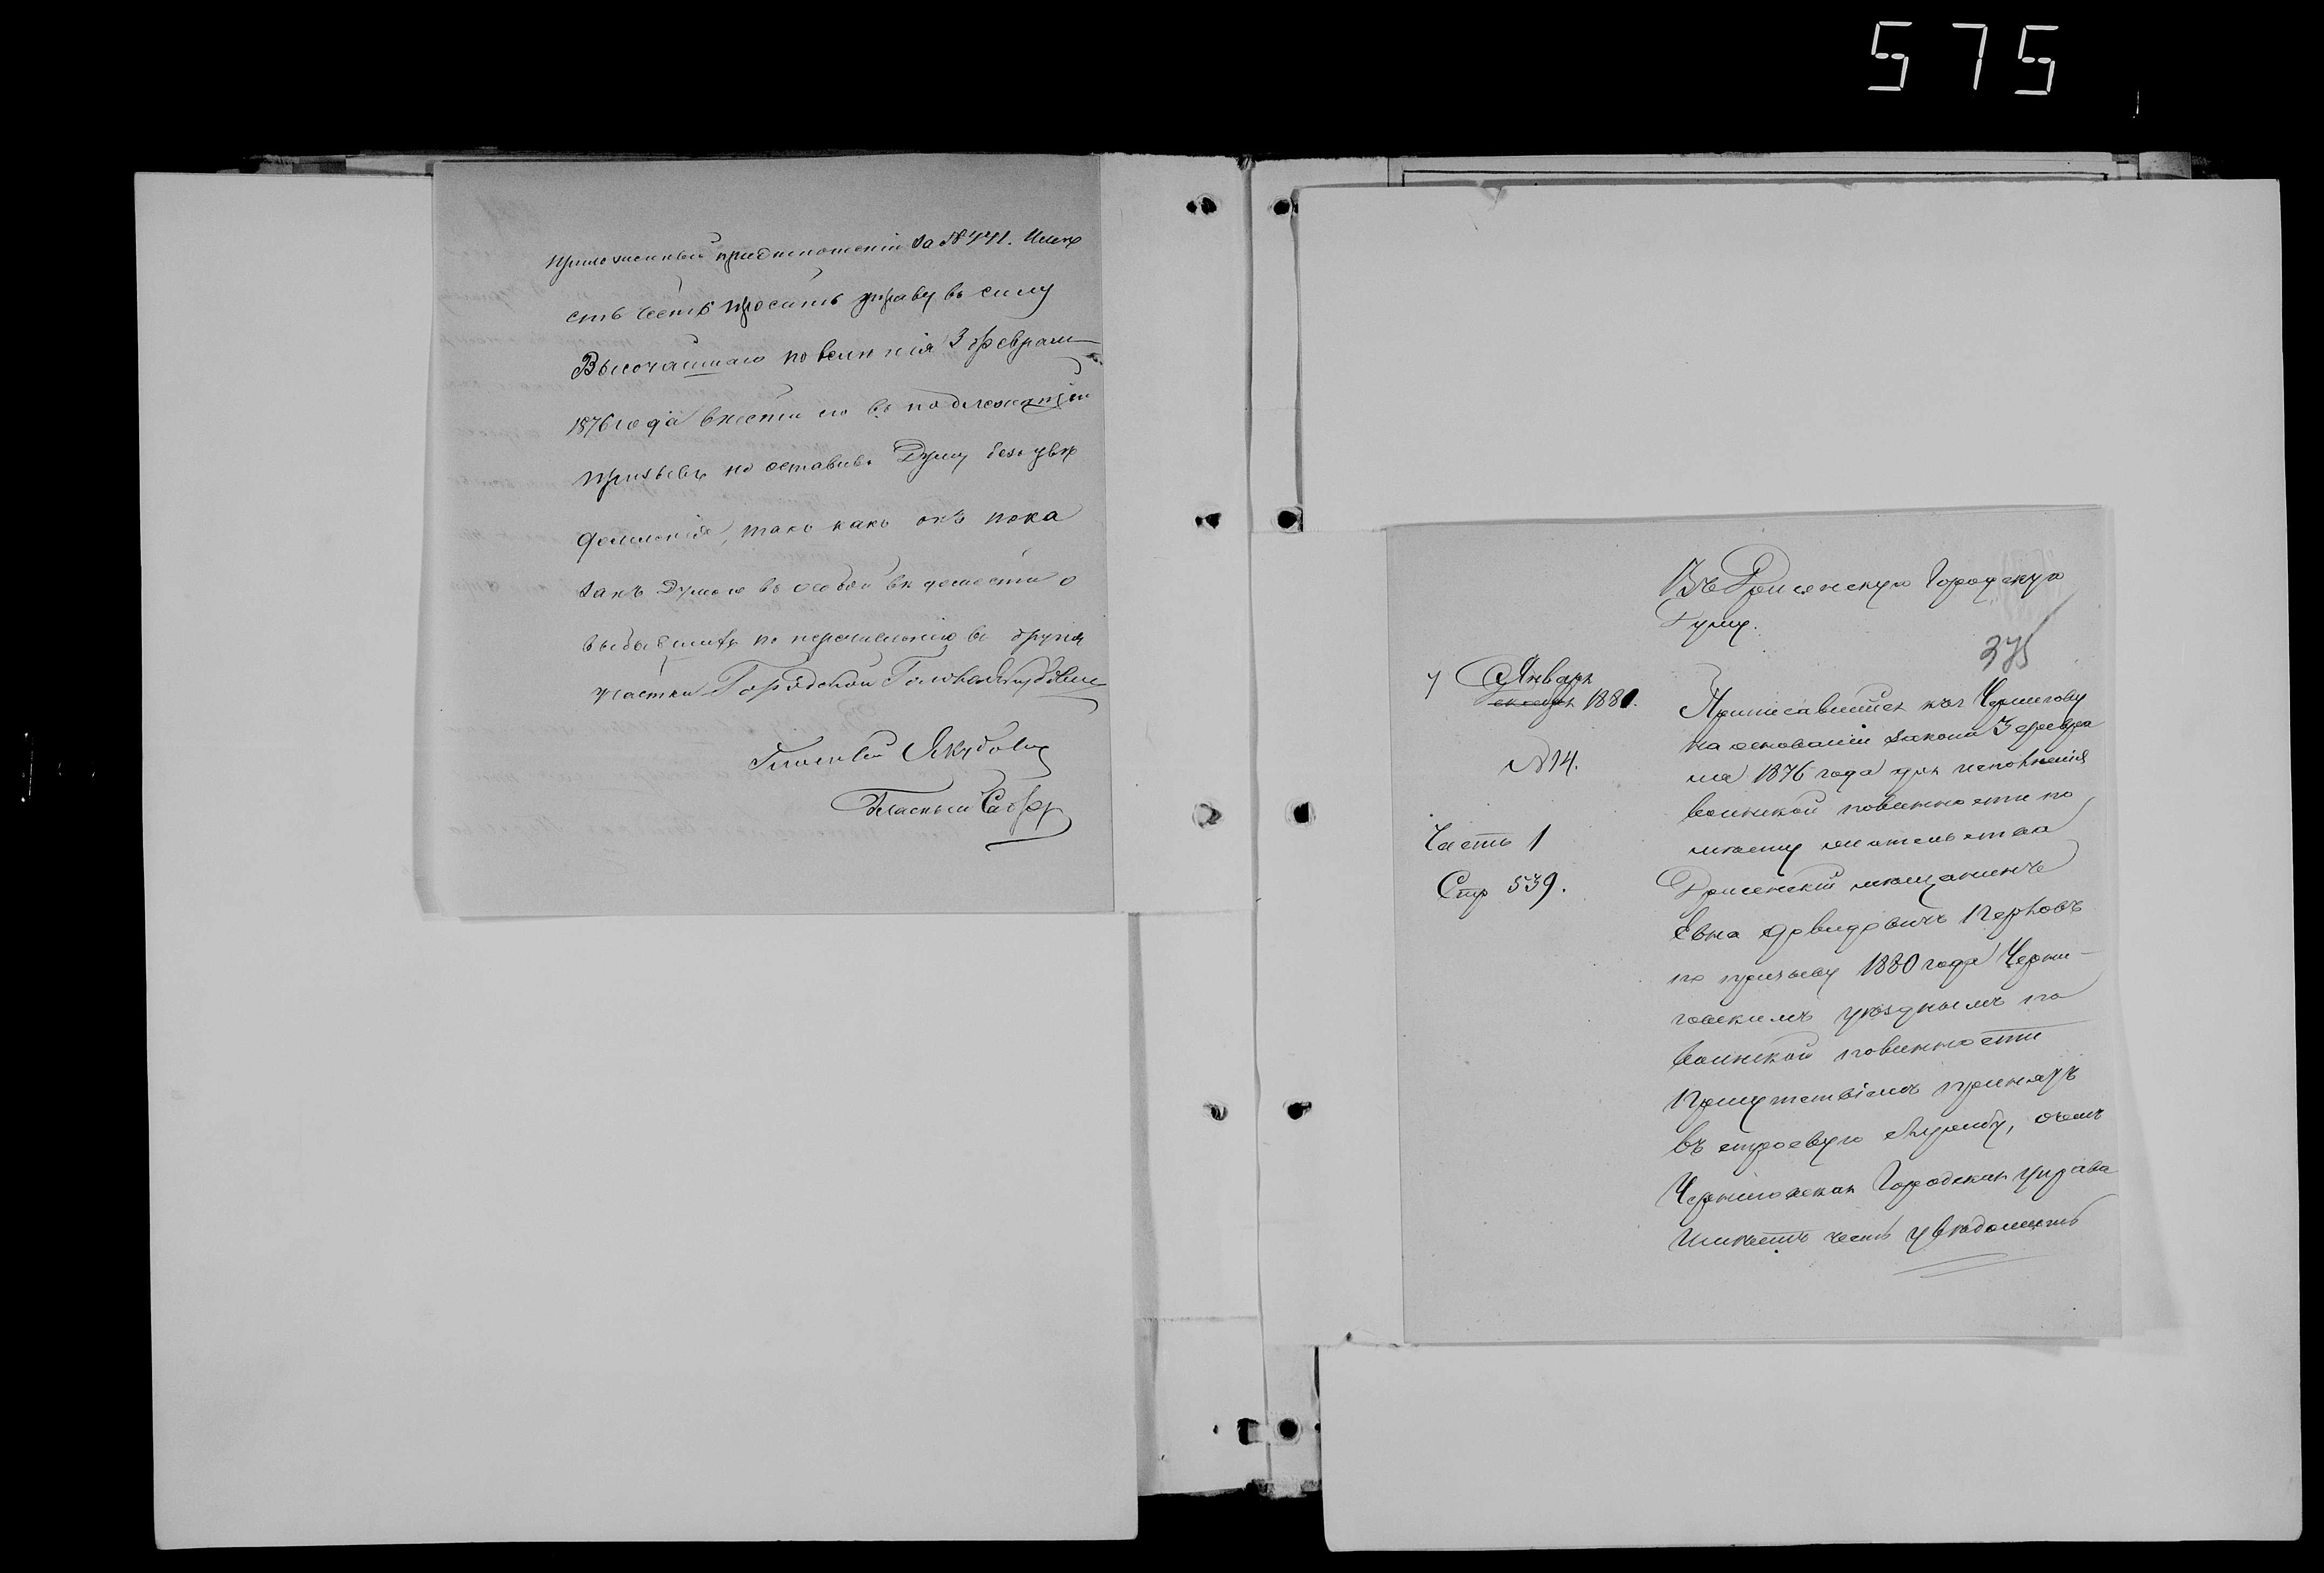 575
приложенный при отношении за № 441. Имѣя
ств честь просить управу въ силу
Высочайшаго повелѣнія 3 февраля
1876 года внести его въ подлежащій
призывъ не оставивъ Думу безъ увѣ
домленія, такъ какъ онъ пока
занъ Думою въ особой вѣдомости о
выбывшихъ по перечисленію въ другія
участки Городской Голова Якубович
Гласный Якубович
Гласный
Въ Дриссенскую Городскую
Думу.
375
7 Января
1881.
№ 14.
Часть 1
Стр 539.
Приписавшійся къ г Чернигову
на основаніи закона 3 февра
ля 1876 года для исполненія
воинской повинности по
мѣсту жительства
Дриссенскій мѣщанинъ
Евна Довидовичъ Перковъ
по призыву 1880 года Черни-
говскимъ уѣзднымъ по
воинской повинности
Присутствіемъ принятъ
въ строевую службу, о чемъ
Черниговская Городская Управа
имѣетъ честь увѣдомить